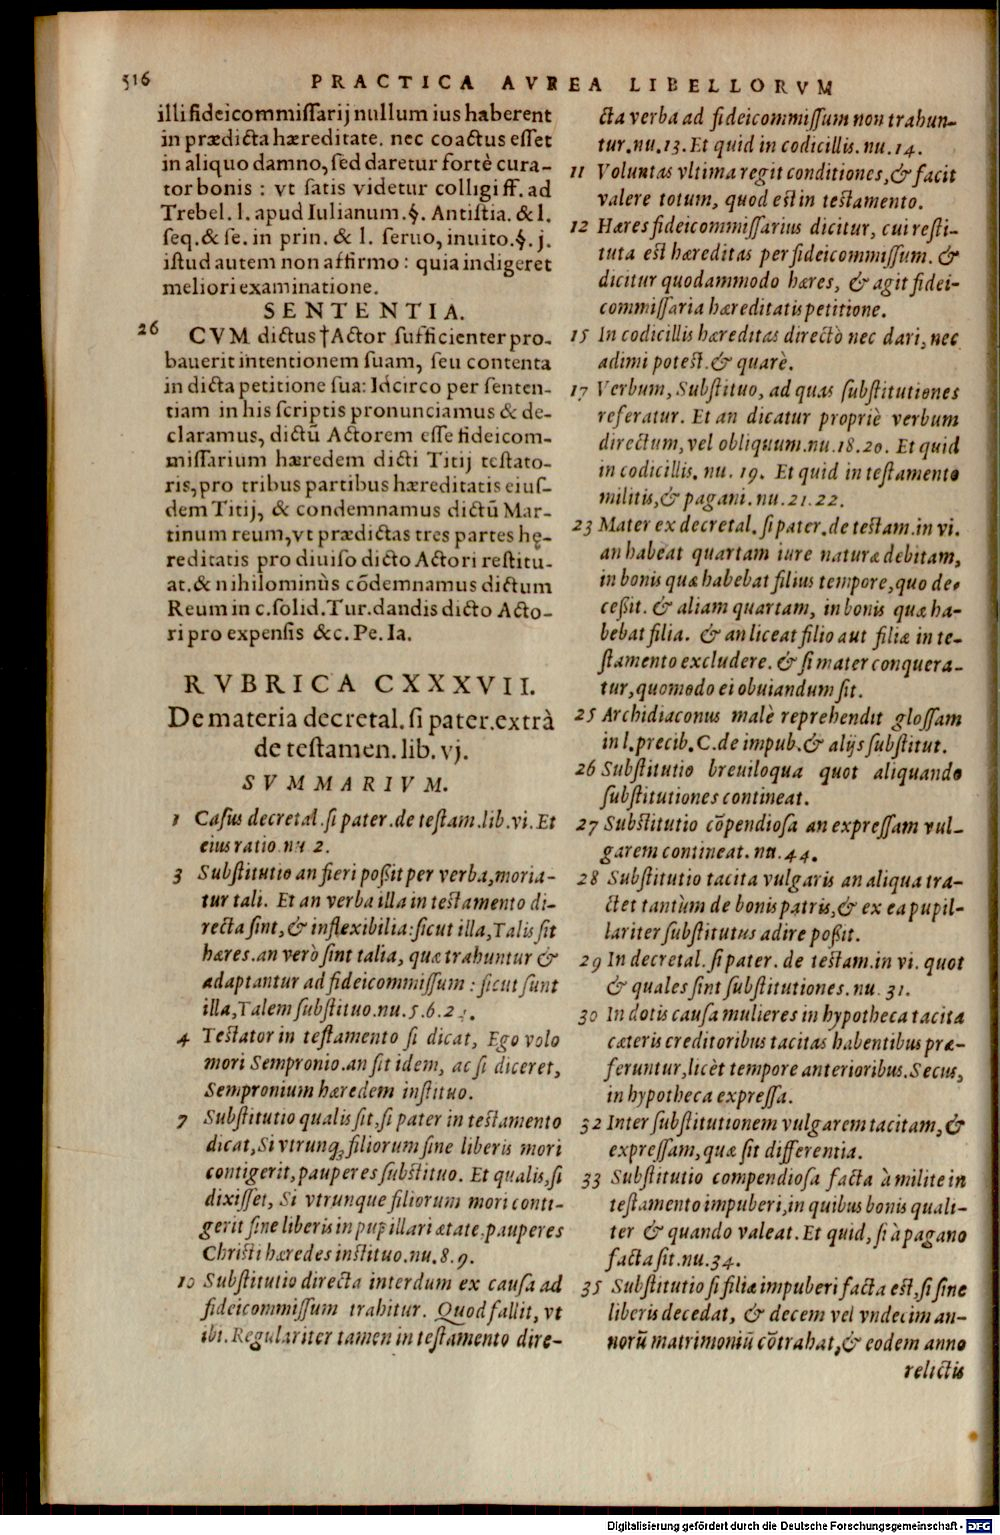 516
PRACTICA AVREA LIBELLORVM
illi fideicommissarij nullum ius haberent
in prædicta hæreditate. nec coactus esset
in aliquo damno, sed daretur fortè cura-
tor bonis : vt satis videtur colligi ff. ad
Trebel. l. apud Iulianum. §. Antistia. & l.
seq. & se. in prin. & l. seruo, inuito. §. j.
istud autem non affirmo : quia indigeret
meliori examinatione.
SENTENTIA.
26 CVM dictus † Actor sufficienter pro-
bauerit intentionem suam, seu contenta
in dicta petitione sua: Idcirco per senten-
tiam in his scriptis pronunciamus & de-
claramus, dictũ Actorem esse fideicom-
missarium hæredem dicti Titij testato-
ris, pro tribus partibus hæreditatis eius-
dem Titij, & condemnamus dictũ Mar-
tinum reum, vt prædictas tres partes hę-
reditatis pro diuiso dicto Actori restitu-
at. & nihilominùs cõdemnamus dictum
Reum in c. solid. Tur. dandis dicto Acto-
ri pro expensis &c. Pe. Ia.
RVBRICA CXXXVII.
De materia decretal. si pater. extrà
de testamen. lib. vj.
SVMMARIVM.
1 Casus decretal. si pater. de testam. lib. vi. Et
eius ratio nu 2.
3 Substitutio an fieri poßit per verba, moria-
tur tali. Et an verba illa in testamento di-
recta sint, & inflexibilia: sicut illa, Talis sit
hæres. an verò sint talia, quæ trahuntur &
adaptantur ad fideicommissum : sicut sunt
illa, Talem substituo. nu. 5. 6. 2
4 Testator in testamento si dicat, Ego volo
mori Sempronio. an sit idem, ac si diceret,
Sempronium hæredem instituo.
7 Substitutio qualis sit, si pater in testamento
dicat, Si vtrunq; filiorum sine liberis mori
contigerit, pauperes substituo. Et qualis, si
dixisset, Si vtrunque filiorum mori conti-
gerit sine liberis in pupillari ætate, pauperes
Christi hæredes instituo. nu. 8. 9.
10 Substitutio directa interdum ex causa ad
fideicommissum trahitur. Quod fallit, vt
ibi. Regulariter tamen in testamento dire-
cta verba ad fideicommissum non trahun-
tur. nu. 13. Et quid in codicillis. nu. 14.
11 Voluntas vltima regit conditiones, & facit
valere totum, quod est in testamento.
12 Hæres fideicommissarius dicitur, cui resti-
tuta est hæreditas per fideicommissum. &
dicitur quodammodo hæres, & agit fidei-
commissaria hæreditatis petitione.
15 In codicillis hæreditas directò nec dari, nec
adimi potest. & quarè.
17 Verbum, Substituo, ad quas substitutiones
referatur. Et an dicatur propriè verbum
directum, vel obliquum. nu. 18. 20. Et quid
in codicillis. nu. 19. Et quid in testamento
militis, & pagani. nu. 21. 22.
23 Mater ex decretal. si pater. de testam. in vi.
an habeat quartam iure naturæ debitam,
in bonis quæ habebat filius tempore, quo de-
ceßit. & aliam quartam, in bonis quæ ha-
bebat filia. & an liceat filio aut filiæ in te-
stamento excludere. & si mater conquera-
tur, quomodo ei obuiandum sit.
25 Archidiaconus malè reprehendit glossam
in l. precib. C. de impub. & alijs substitut.
26 Substitutio breuiloqua quot aliquando
substitutiones contineat.
27 Substitutio cõpendiosa an expressam vul-
garem contineat. nu. 44.
28 Substitutio tacita vulgaris an aliqua tra-
ctet tantùm de bonis patris, & ex ea pupil-
lariter substitutus adire poßit.
29 In decretal. si pater. de testam. in vi. quot
& quales sint substitutiones. nu. 31.
30 In dotis causa mulieres in hypotheca tacita
cæteris creditoribus tacitas habentibus præ-
feruntur, licèt tempore anterioribus. Secus,
in hypotheca expressa.
32 Inter substitutionem vulgarem tacitam, &
expressam, quæ sit differentia.
33 Substitutio compendiosa facta à milite in
testamento impuberi, in quibus bonis quali-
ter & quando valeat. Et quid, si à pagano
facta sit. nu. 34.
35 Substitutio si filiæ impuberi facta est, si sine
liberis decedat, & decem vel vndecim an-
norũ matrimoniũ cõtrahat, & eodem anno
relictis
Digitalisierung gefördert durch die Deutsche Forschungsgemeinschaft - DFG